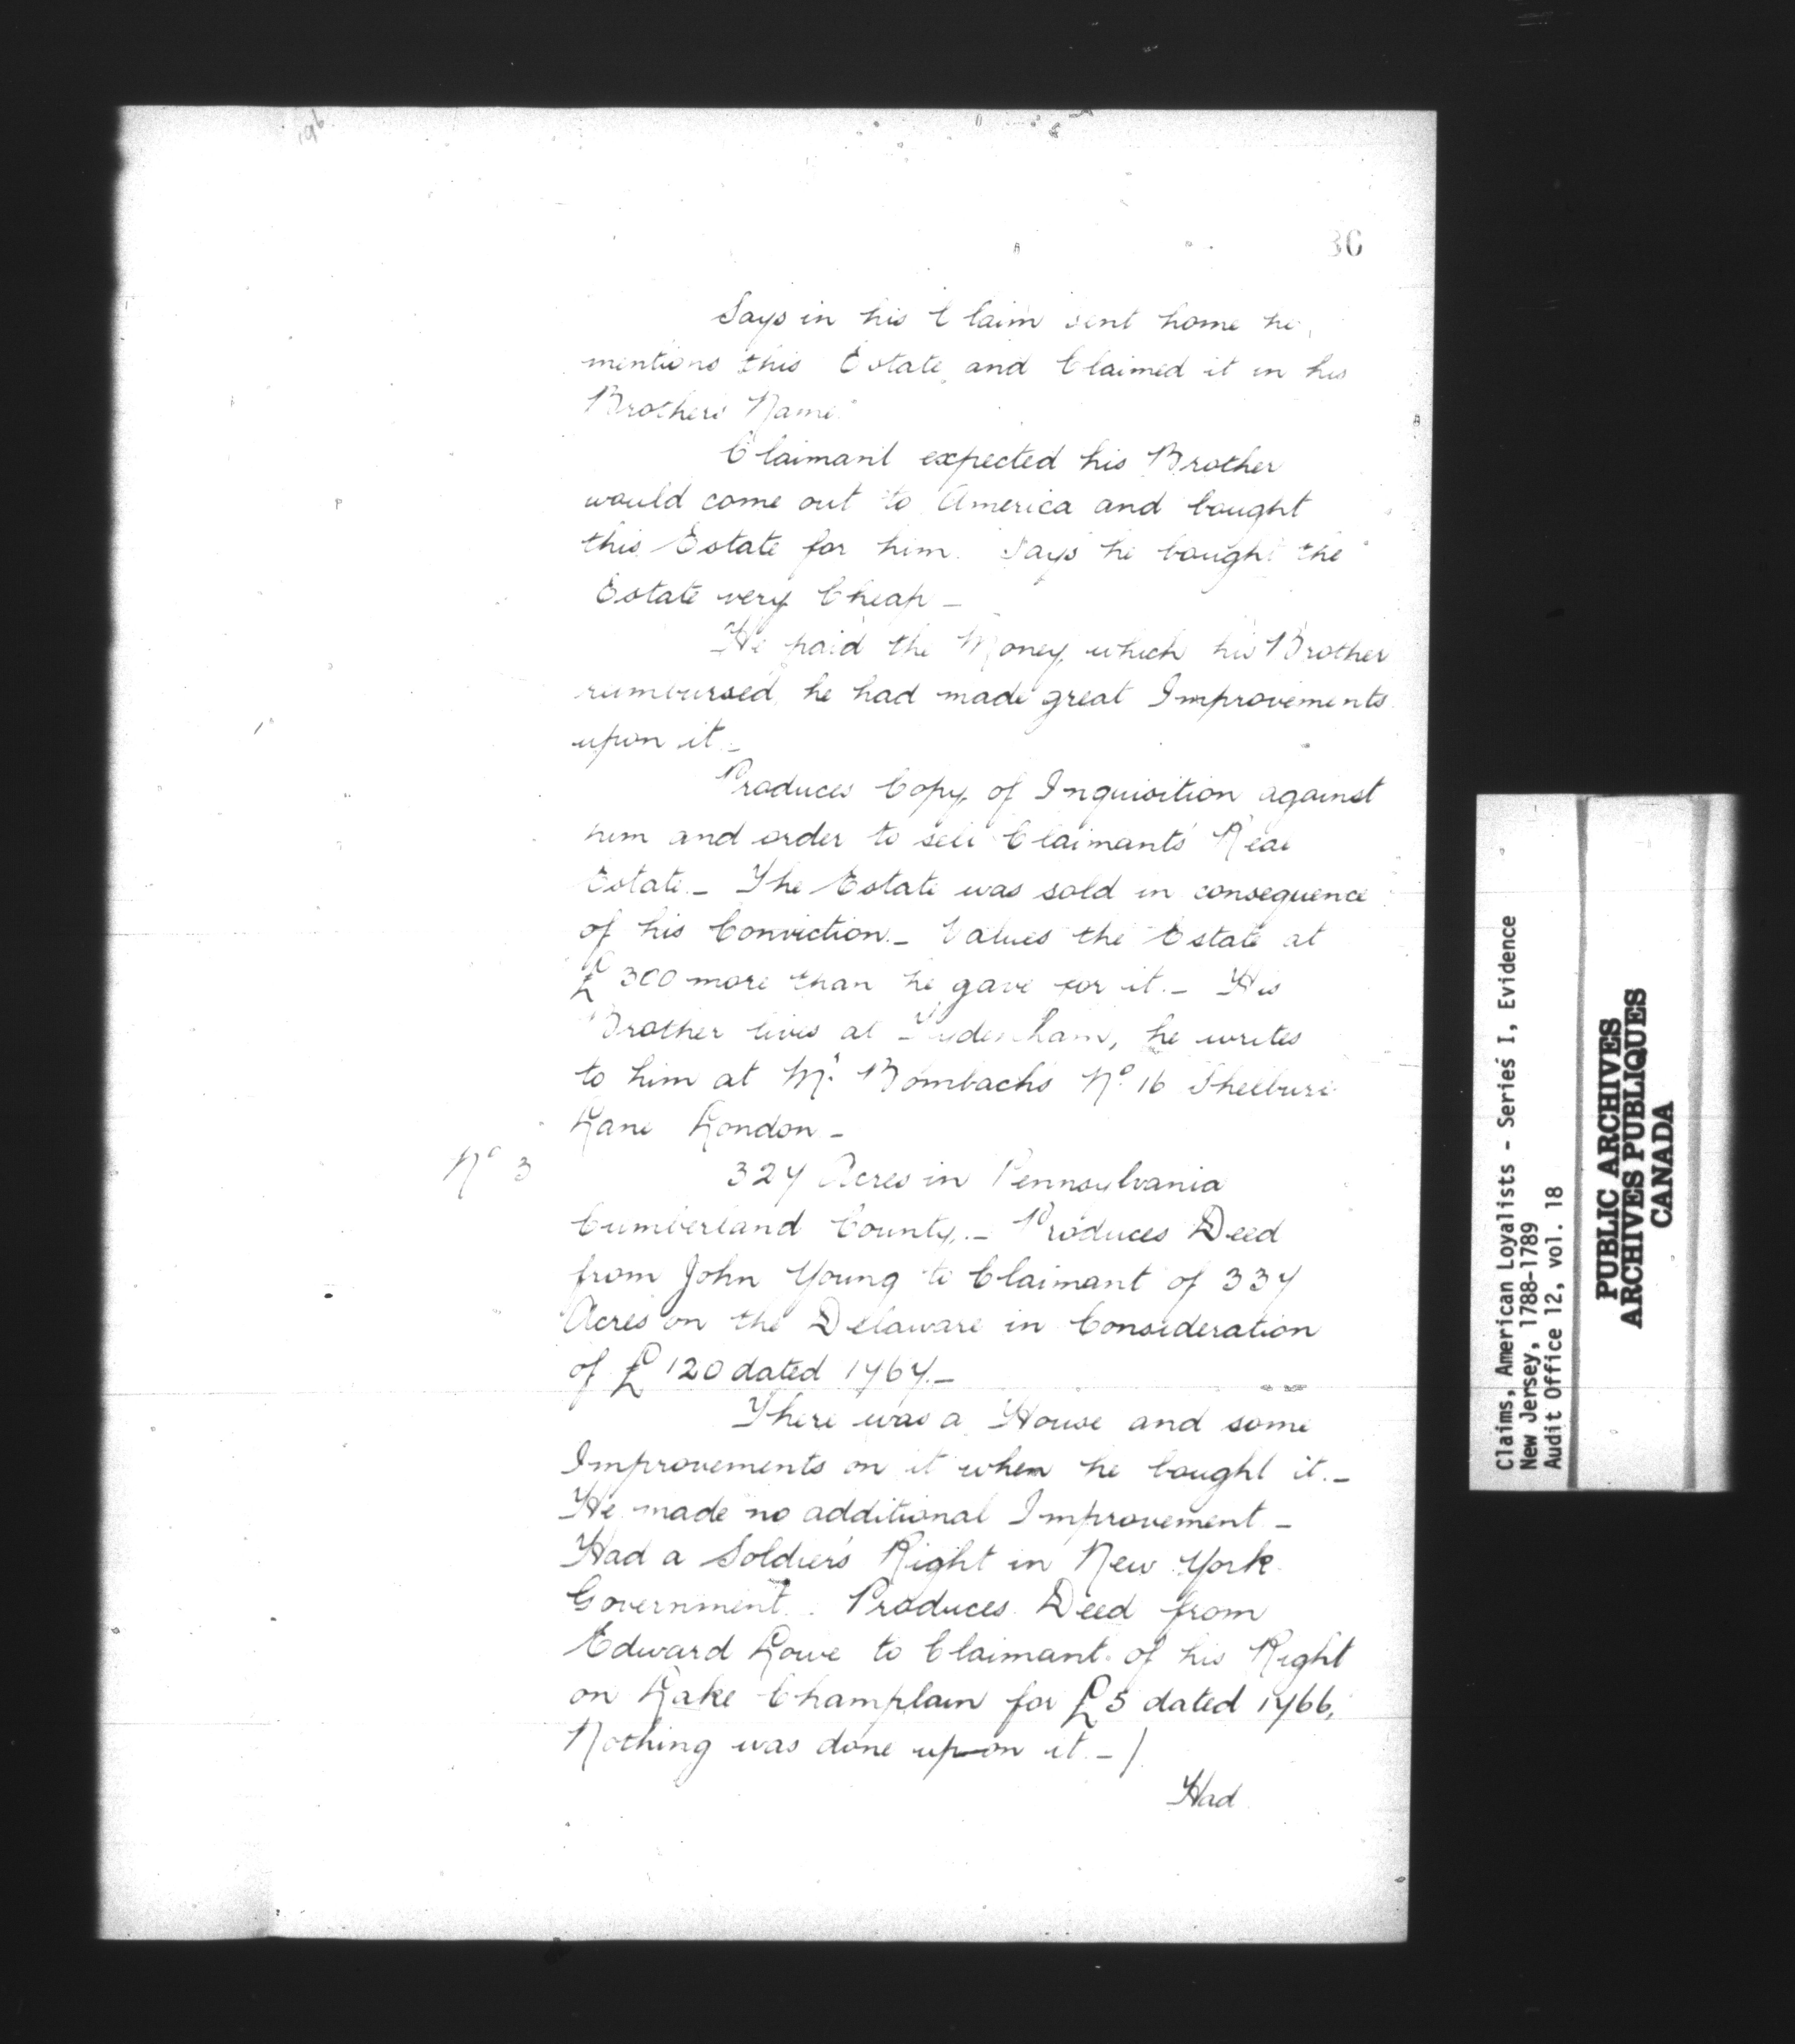 196
30
Says in his Claim sent home he
mentions this Estate and Claimed it in his
Brothers Name.
Claimant expected his Brother
would come out to America and bought
this Estate for him. Says he bought the
Estate very Cheap -
He paid the Money which his Brother
reimbursed, he had made great Improvements
upon it. -
Produces Copy of Inquisition against
him and order to sell Claimants Real
Estate. - The Estate was sold in consequence
of his Conviction. - Values the Estate at
£300 more than he gave for it. - His
Brother lives at he writes
to him at Mr. Bombachs No. 16
Lane London -
No 3
327 Acres in Pennsylvania
Cumberland County. - Produces Deed
from John Young to Claimant of 337
Acres on the Delaware in Consideration
of £120 dated 1767. -
There was a House and some
Improvements on it when he bought it. -
He made no additional Improvement -
Had a Soldiers Right in New York
Government. Produces Deed from
Edward Lowe to Claimant of his Right
on Lake Champlain for £5 dated 1766,
Nothing was done upon it. - /
Had
Claims, American Loyalists - Series I, Evidence
New Jersey, 1788-1789
Audit Office 12, vol. 18
PUBLIC ARCHIVES
ARCHIVES PUBLIQUES
CANADA